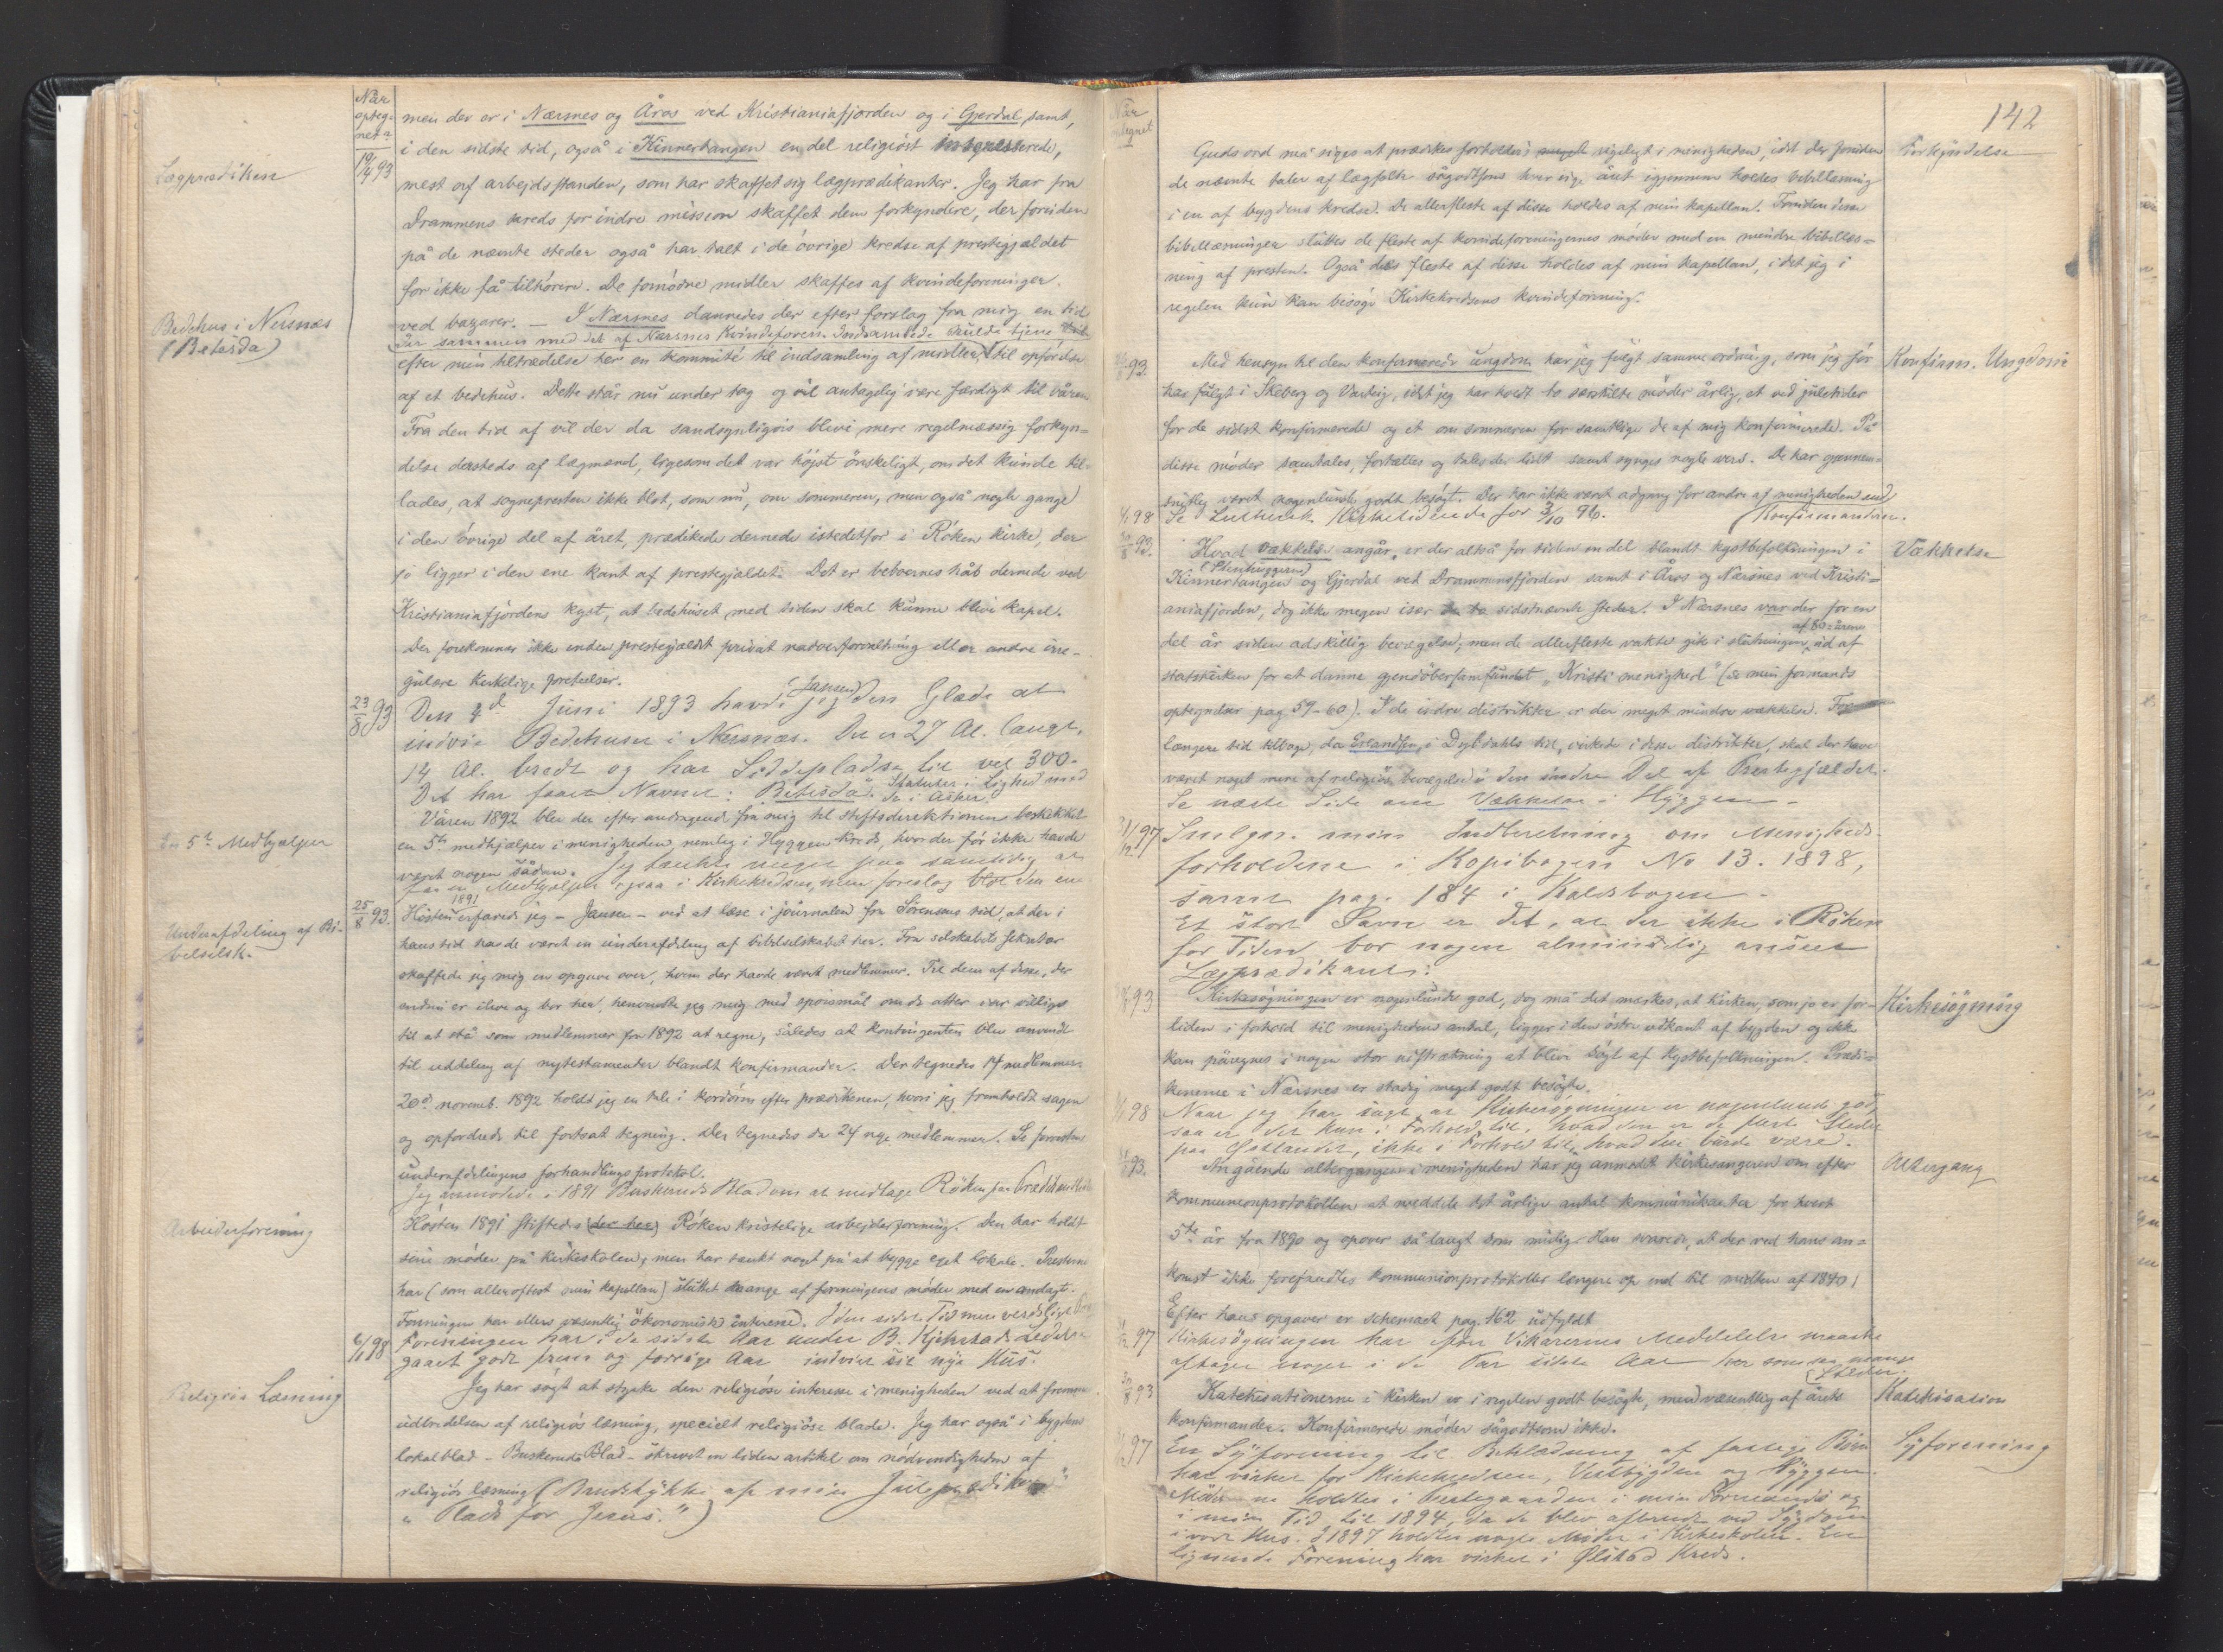 Når
opteg-
net
19/4 93
Lægprædiken
men der er i Nærsnes og Åros ved Kristianiafjorden og i Gjerdal samt,
i den sidste tid, også i Kinnertangen en del religiöst interesserede,
mest af arbejdsstanden, som har skaffet sig lægprædikanter. Jeg har fra
Drammens kreds for indre mission skaffet dem forkyndere, der foruden
på de nævnte steder også har talt i de övrige kredse af prestegjældet
for ikke få tilhörere. De fornødne midler skaffes af kvindeforeninger
ved bazarer. — I Nærsnes dannedes der efter forslag fra mig en tid
Bedehus i Nersnæs
(Betesda)
Der sammen med det af Nærsnes Kvindeforen. indsamlede skulde tjene
efter min tiltrædelse her en kommité til indsamling af midler til opförelse
af et bedehus. Dette står nu under tag og vil antagelig være færdigt til våren.
Fra den tid af vil der da sandsynligvis blive mere regelmæssig forkyn-
delse dersteds af lægmænd, ligesom det var höjst önskeligt, om det kunde til-
lades, at sognepresten ikke blot, som nu, om sommeren, men også nogle gange
i den övrige del af året, prædikede dernede istedetfor i Röken kirke, der
jo ligger i den ene kant af prestegjældet. Det er beboernes håb dernede ved
Kristianiafjordens kyst, at bedehuset med tiden skal kunne blive kapel.
Der forekommer ikke inden prestegjældet privat nadverforvaltning eller andre irre-
gulære kirkelige foreteelser.
23/8 93
Den 4d Juni 1893 havde jeg (Jansen) den Glæde at
indvie Bedehuset i Nersnæs. Det er 27 Al. langt,
14 Al. bredt og har Siddepladse til vel 300.
Det har faaet Navnet: "Betesda". Statuter i Lighed med
de i Asker.
En 5te Medhjælper
Våren 1892 blev der efter andragende fra mig til stiftsdirektionen beskikket
en 5te medhjælper i menigheden, nemlig i Hyggen kreds, hvor der för ikke havde
været nogen sådan. Jeg tænkte meget paa samtidig at
faa en Medhjælper ogsaa i Kirkekredsen, men foreslog blot den ene
25/8 93.
Underafdeling af Bi-
belselsk.
Hösten 1891 erfarede jeg – Jansen – ved at læse i journalen fra Sörensens tid, at der i
hans tid havde været en underafdeling af bibelselskabet her. Fra selskabets sekretær
skaffede jeg mig en opgave over, hvem der havde været medlemmer. Til dem af disse, der
endnu er ilive og bor her, henvendte jeg mig med spörsmål om de atter var villige
til at stå som medlemmer fra 1892 at regne, således at kontingenten blev anvendt
til uddeling af nytestamenter blandt konfirmander. Der tegnedes 14 medlemmer.
20de novemb. 1892 holdt jeg en tale i kordören efter prædikenen, hvori jeg fremholdt sagen
og opfordrede til fortsat tegning. Der tegnedes da 24 nye medlemmer. Se forresten
underafdelingens forhandlingsprotokol.
Jeg anmodede i 1891 Buskeruds Blad om at medtage Röken paa
Arbeiderforening
Hösten 1891 stiftedes der her Röken kristelige arbejderforening. Den har holdt
sine möder på kirkeskolen, men har tænkt noget på at bygge eget lokale. Presterne
har (som alleroftest min kapellan) sluttet mange af foreningens möder med en andagt.
Foreningen har ellers væsentlig ökonomisk interesse. I den sidste Tid mere verdsligt
6/1 98
Foreningen har i de sidste Aar under B. Kjekstads Ledelse
gaaet godt frem og forrige Aar indviet sit nye Hus.
Religiös Læsning
Jeg har sögt at styrke den religiöse interesse i menigheden ved at fremme
udbredelsen af religiös læsning, specielt religiöse blade. Jeg har også i bygdens
lokalblad – Buskeruds Blad – skrevet en liden artikel om nödvendigheden af
religiös læsning (Brudstykke af min Juleprædiken
"Plads for Jesus.")
142
Når
optegnet
Forkyndelse
Guds ord må siges at prædikes forholdsvis meget rigeligt i menigheden, idet der foruden
de nævnte taler af lægfolk sågodtsom hver uge året igjennem holdes bibellæsning
i en af bygdens kredse. De allerfleste af disse holdes af min kapellan. Foruden disse
bibellæsninger sluttes de fleste af kvindeforeningernes möder med en mindre bibellæs-
ning af presten. Også de fleste af disse holdes af min kapellan, idet jeg i
regelen kun kan besöge Kirkekredsens kvindeforening.
93.
Konfirm. Ungdom
Med hensyn til den konfirmerede ungdom har jeg fulgt samme ordning, som jeg för
har fulgt i Skeberg og Varteig, idet jeg har holdt to særskilte möder årlig, et ved juletider
for de sidst konfirmerede og et om sommeren for samtlige de af mig konfirmerede. På
disse möder samtales, fortælles og tales der lidt samt synges nogle vers. De har gjennem-
snitlig været nogenlunde godt besögt. Der har ikke været adgang for andre af menigheden end
Konfirmanderne.
98
Se Luthersk Kirketidende for 3/10 96.
30/8 93.
Vækkelse
Hvad vækkelse angår, er der altså for tiden en del blandt kystbefolkningen i
(Stenhuggerne)
Kinnertangen og Gjerdal ved Drammensfjorden samt i Åros og Nærsnes ved Kristi-
aniafjorden, dog ikke megen især de to sidstnævnte steder. I Nærsnes var der for en
af 80-årene
del år siden adskillig bevægelse, men de allerfleste vakte gik i slutningen ud af
statskirken for at danne gjendöbersamfundet "Kristi menighed" (se min formands
optegnelser pag 59-60). I de indre distrikter er der meget mindre vækkelse. For
længere tid tilbage, da Erlandsen, i Dybdahls tid, virkede i disse distrikter, skal der have
været noget mere af religiös bevægelse i den indre Del af Prestegjældet.
Se næste Side om Vækkelse i Hyggen –
31/12 97
Smlgn. min Indberetning om Menigheds-
forholdene i Kopibogen No 13. 1898,
samt pag. 184 i Kaldsbogen –
Et stort Savn er det, at der ikke i Röken
for Tiden bor nogen almindelig anseet
Lægprædikant.
93
Kirkesögning
Kirkesögningen er nogenlunde god, dog må det mærkes, at kirken, som jo er for-
liden i forhold til menighedens antal, ligger i den östre udkant af bygden og ikke
kan påregnes i nogen stor udstrækning at blive sögt af kystbefolkningen. Prædi-
kenerne i Nærsnes er stadig meget godt besögte.
98
Naar jeg har sagt, at Kirkesögningen er nogenlunde god,
saa er det kun i Forhold til, hvad den er de fleste Steder
paa Östlandet, ikke i Forhold til, hvad den burde være.
93.
Altergang
Angående altergangen i menigheden har jeg anmodet kirkesangeren om efter
kommunionprotokollen at meddele det årlige antal kommunikanter for hvert
5te år fra 1890 og opover så langt som mulig. Han svarede, at der ved hans an-
komst ikke forefandtes kommunionprotokoller længere op end til midten af 1840.
Efter hans opgaver er schemaet pag. 162 udfyldt
97
Kirkesögningen har efter Vikarernes Meddelelse maaske
aftaget noget i de Par sidste Aar her som saa mange
Steder.
30/8 93
Katekisation
Katekisationerne i kirken er i regelen godt besögte, mend væsentlig af årets
konfirmander. Konfirmerede möder sågodtsom ikke.
97
Syforening
En Syforening til Beklædning af fattige Börn
har virket for Kirkekredsen, Vestbygden og Hyggen.
Möderne holdtes i Prestegaarden i min Formands og
i min Tid til 1894, da de blev afbrudt ved Sygdom
i vort Hus. I 1897 holdtes nogle Möder i Kirkeskolen. En
lignende Forening har virket i Ölstad Kreds.